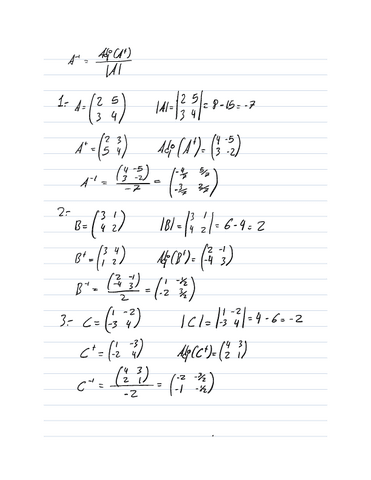 A⁻¹ = Adj(Aᵗ) / |A|
1.- A = (2 5; 3 4) |A| = |2 5; 3 4| = 8 - 15 = -7
Aᵗ = (2 3; 5 4) Adj(Aᵗ) = (4 -5; 3 -2)
A⁻¹ = (4 -5; 3 -2) / -7 = (-4/7 5/7; -3/7 2/7)
2.- B = (3 1; 4 2) |B| = |3 1; 4 2| = 6 - 4 = 2
Bᵗ = (3 4; 1 2) Adj(Bᵗ) = (2 -1; -4 3)
B⁻¹ = (2 -1; -4 3) / 2 = (1 -1/2; -2 3/2)
3.- C = (1 -2; -3 4) |C| = |1 -2; -3 4| = 4 - 6 = -2
Cᵗ = (1 -3; -2 4) Adj(Cᵗ) = (4 3; 2 1)
C⁻¹ = (4 3; 2 1) / -2 = (-2 -3/2; -1 -1/2)